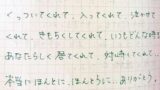 くっついてくれて、入ってくれて、泣かせて
くれて、きもちくしてくれて、いつもどんな時も
あたらしく暦てくれて、対峙てくれて…
本当にほんとに、ほんとうに、ありがとう。